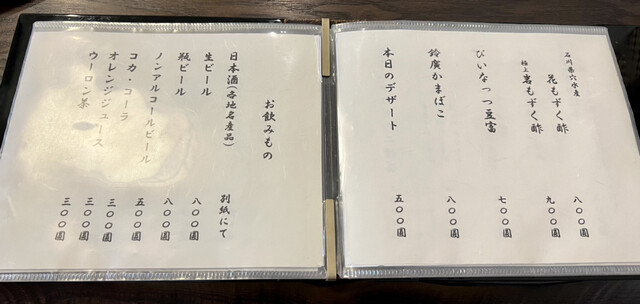 石川県穴水産
花もずく酢 八〇〇圓
極上 岩もずく酢 九〇〇圓
ぴいなっつ豆富 七〇〇圓
鈴廣かまぼこ 八〇〇圓
本日のデザート 五〇〇圓
お飲みもの
日本酒(各地名産品) 別紙にて
生ビール 八〇〇圓
瓶ビール 八〇〇圓
ノンアルコールビール 五〇〇圓
コカ・コーラ 三〇〇圓
オレンジジュース 三〇〇圓
ウーロン茶 三〇〇圓